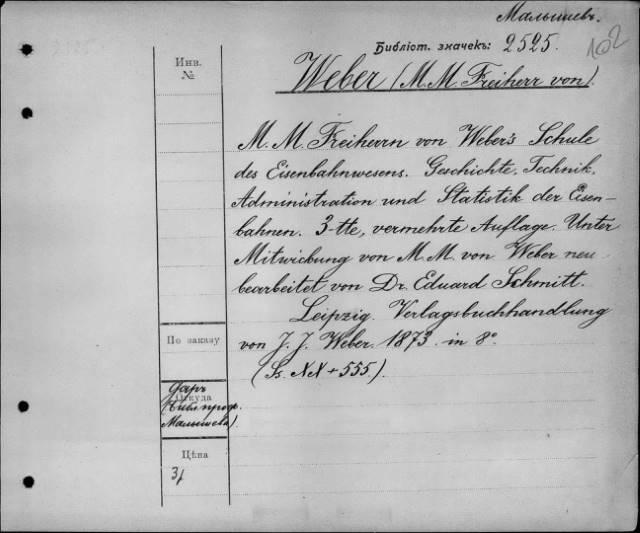 Малышевъ.
Библіот. значекъ: 2525.
102
Инв.
№
Weber (M. M. Freiherr von).
M. M. Freiherrn von Weber's Schule
des Eisenbahnwesens. Geschichte, Technik,
Administration und Statistik der Eisen-
bahnen. 3-tte, vermehrte Auflage. Unter
Mitwirkung von M. M. von Weber neu
bearbeitet von Dr. Eduard Schmitt.
Leipzig. Verlagsbuchhandlung
von J. J. Weber. 1873. in 8°
(Ss. XX + 555.)
По заказу
Даръ
Откуда
Малышева)
Цѣна
3